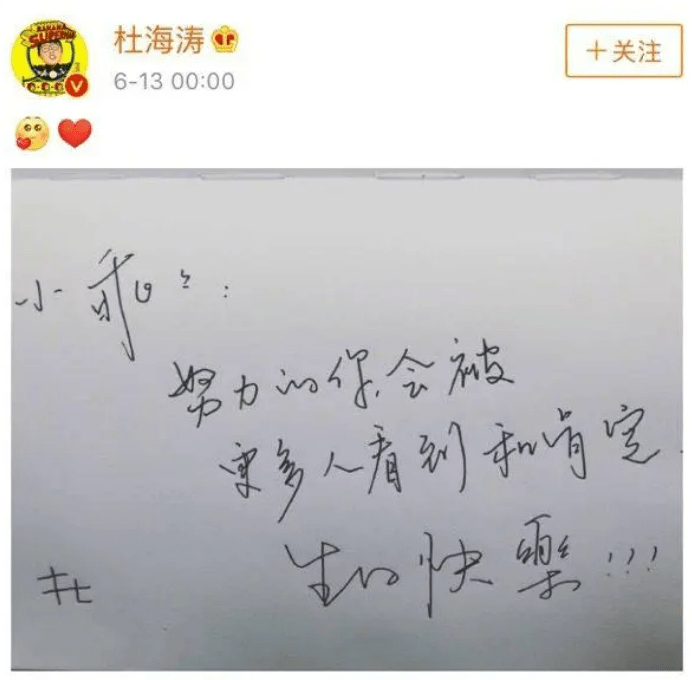 杜海涛
+关注
6-13 00:00
小乖乖:
努力的你,会被
更多人看到和肯定.
生日快樂!!!
杜